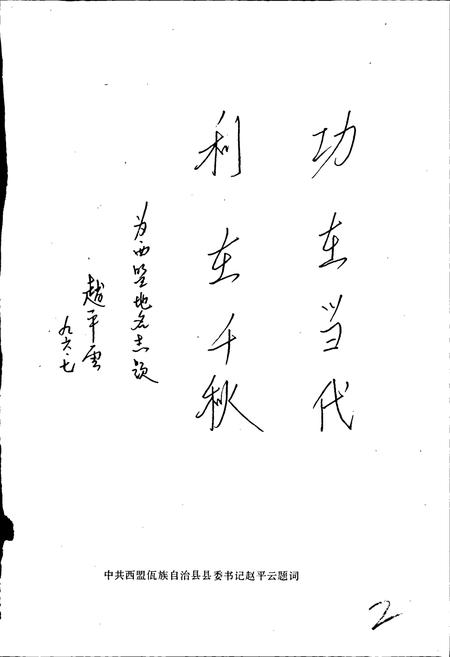 功在当代
利在千秋
为西盟地名志题
赵平雲
九六.七
中共西盟佤族自治县县委书记赵平云题词
2